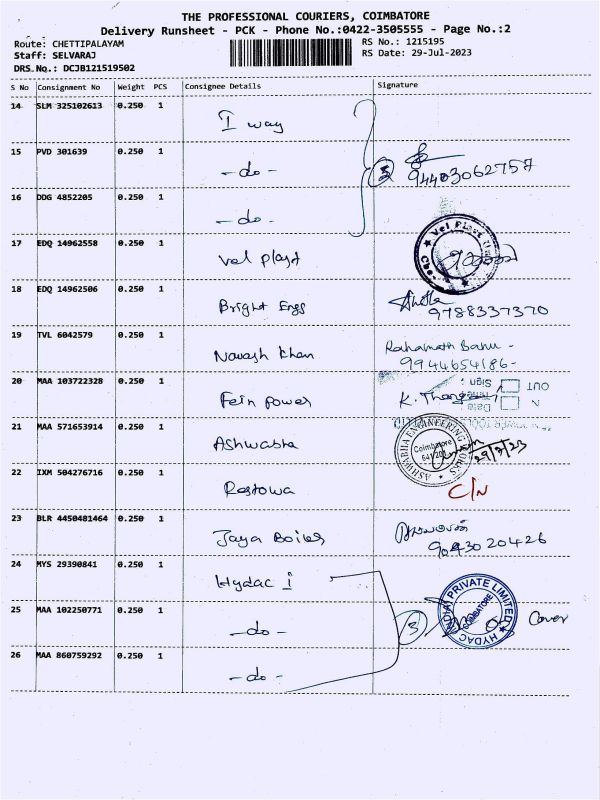 THE PROFESSIONAL COURIERS, COIMBATORE
Delivery Runsheet - PCK - Phone No.:0422-3505555 - Page No.:2
Route: CHETTIPALAYAM
RS No.: 1215195
Staff: SELVARAJ
RS Date: 29-Jul-2023
DRS.No.: DCJB121519502
S No Consignment No Weight PCS Consignee Details Signature
14 SLM 325102613 0.250 1 I way
15 PVD 301639 0.250 1 -do- 3
94403062757
16 DDG 4852205 0.250 1 -do-
17 EDQ 14962558 0.250 1 Vel plast
Vel Plast
18 EDQ 14962506 0.250 1 Bright Engg
9788337370
19 TVL 6042579 0.250 1 Navash khan Rahamath Banu -
9944654186-
20 MAA 103722328 0.250 1 Fein power K. Thangam
OUT
Sign :
Time
Date
N
21 MAA 571653914 0.250 1 Ashwabha
ASHWABHA ENGINEERING WORKS
Coimbatore
641 201
29/7/23
22 IXM 504276716 0.250 1 Rostowa C/N
23 BLR 4450481464 0.250 1 Jaya Boiler
9043020426
24 MYS 29390841 0.250 1 Hydac i
25 MAA 102250771 0.250 1 -do- 3
HYDAC (INDIA) PRIVATE LIMITED
COIMBATORE
Cover
26 MAA 860759292 0.250 1 -do-